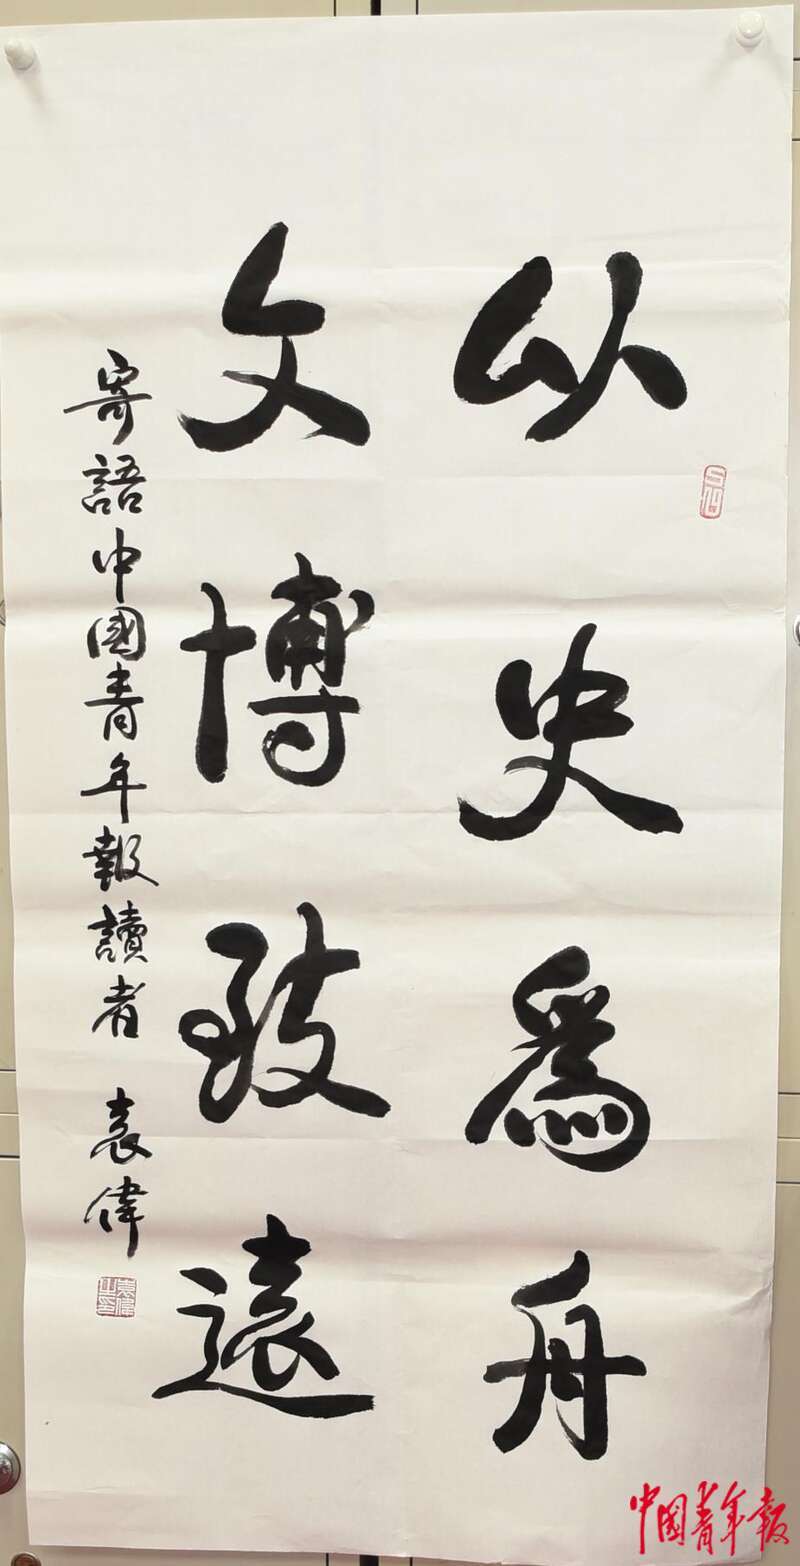 以史爲舟
文博致遠
寄語中國青年報讀者 袁偉
袁偉之印
中国青年报